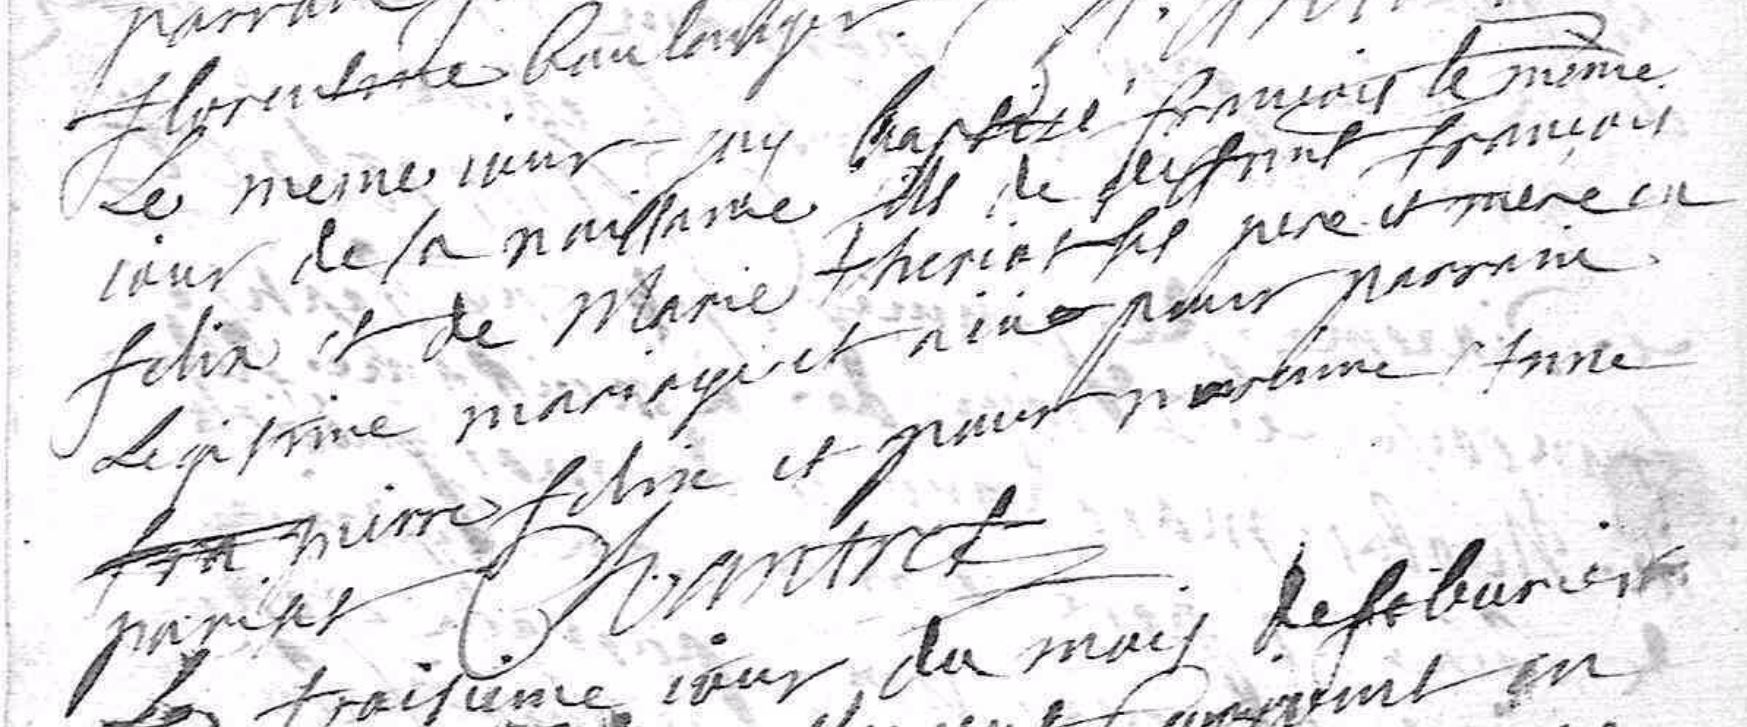 florentine Boulanger.
Le meme iour jay baptisé françois le même
iour de sa naissance fils de deffunt françois
felix et de Marie theriot ses pere et mere en
Legitime mariage et a eu pour parrain
pierre felix et pour maraine Anne
pariset Chantret
Le troisieme iour du mois de feburier
en